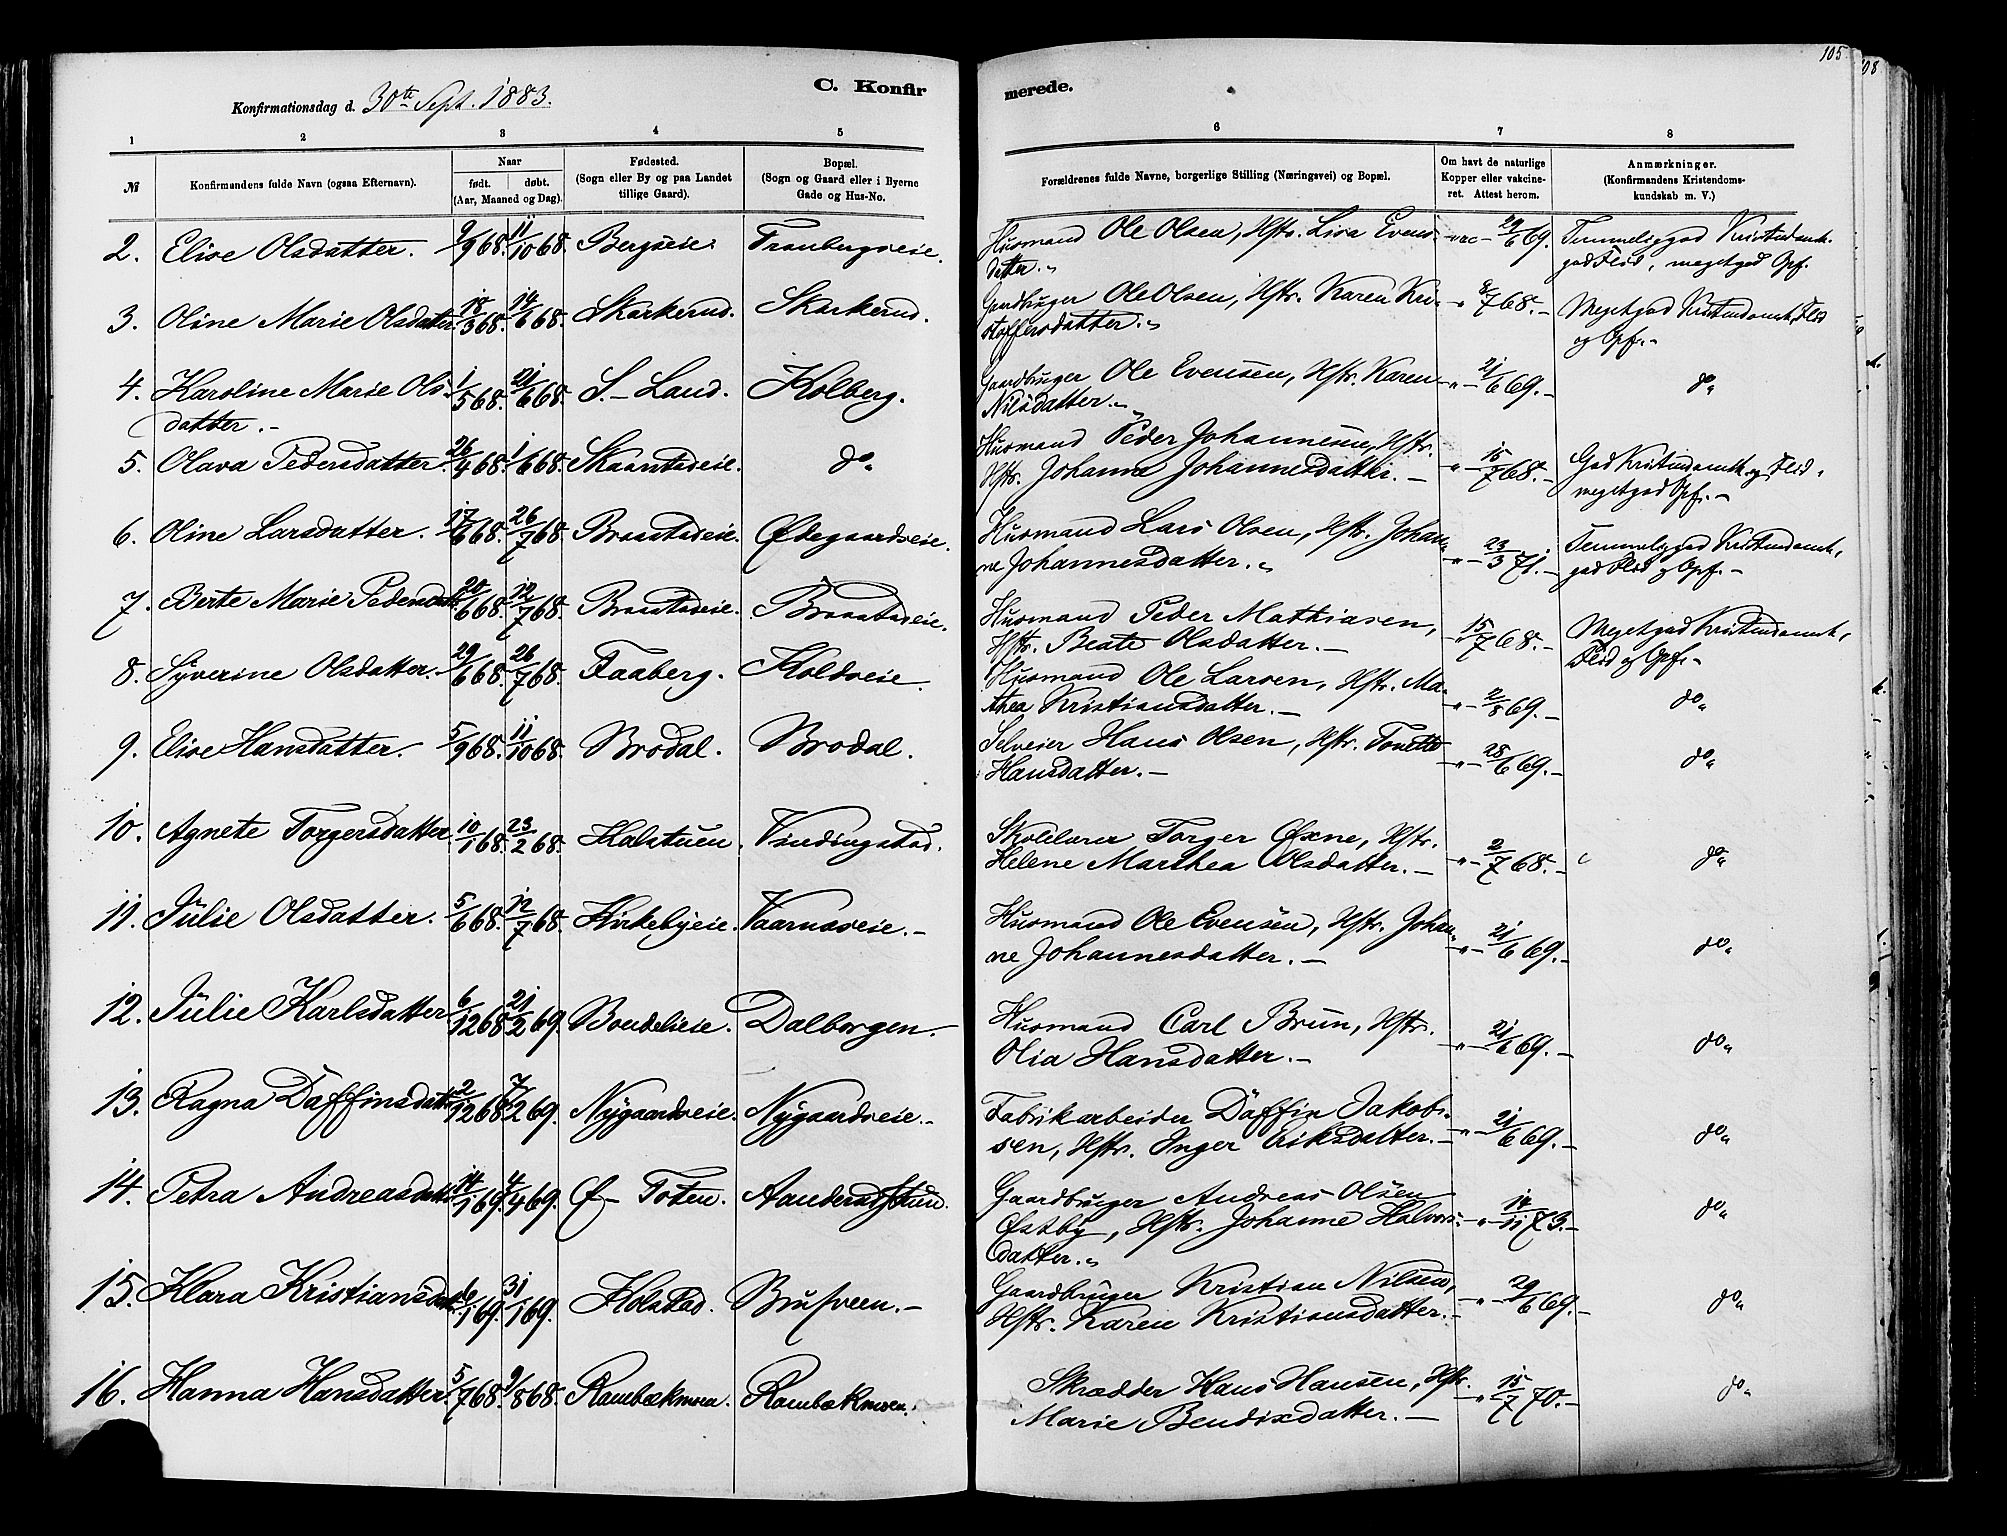 105
108
Konfirmationsdag d. 30th Sept. 1883.
C. Konfirmerede.
1 2 3 4 5 6 7 8
№ Konfirmandens fulde Navn (ogsaa Efternavn). Naar født. døbt. (Aar, Maaned og Dag). Fødested. (Sogn eller By og paa Landet tillige Gaard). Bopæl. (Sogn og Gaard eller i Byerne Gade og Hus-No. Forældrenes fulde Navne, borgerlige Stilling (Næringsvei) og Bopæl. Om havt de naturlige Kopper eller vakcineret. Attest herom. Anmærkninger. (Konfirmandens Kristendomskundskab m. V.)
2. Elise Olsdatter. 9/9 68. 11/10 68. Bergseie. Tranbergseie. Husmand Ole Olsen, Hstr. Lisa Evens- vac- 29/6 69. Temmelig god Kristendomsk.
datter. „ god Flid, meget god Opf.
3. Oline Marie Olsdatter 18/3 68. 14/6 68. Skarkerud. Skarkerud. Gaardbruger Ole Olsen, Hstr. Karen Kri- „ 8/7 68.- Meget god Kristendomsk, Flid
stoffersdatter. „ og Opf.-
4. Karoline Marie Ols- 1/5 68. 21/6 68. S.-Land. Kolberg. Gaardbruger Ole Evensen, Hstr. Karen -„- 21/6 69.- do„
datter.- Nilsdatter.-„
5. Olava Pedersdatter. 26/4 68. 1/6 68. Skaanstadeie. do„ Husmand Peder Johannesen, Hstr.
Hstr. Johanne Johannesdatter.- „- 15/7 68.- God Kristendomsk. og Flid,
meget god Opf.-
6. Oline Larsdatter. 17/6 68. 26/7 68. Braastadeie. Ødegaardseie. Husmand Lars Olsen, Hstr. Johan-
ne Johannesdatter. „ -„- 23/3 71.- Temmelig god Kristendomsk,
god Flid og Opf.-
7. Berte Marie Pedersdatt 20/6 68. 12/7 68. Braastadeie. Braastadeie. Husmand Peder Mathiasen,
Hstr. Beate Olsdatter.- 15/7 68.- Meget god Kristendomsk,
Flid og Opf.-
8. Syverine Olsdatter. 29/6 68. 26/7 68. Faaberg. Koldseie. Husmand Ole Larsen, Hstr. Ma-
thea Kristiansdatter.- „- 2/8 69.- do„
9. Elise Hansdatter. 5/9 68. 11/10 68. Brodal. Brodal. Selveier Hans Olsen, Hstr. Tonette
Hansdatter.- -„- 28/6 69.- do„
10. Agnete Torgersdatter 10/1 68. 23/2 68. Kalstuen. Vindingstad. Skolelærer Torger Øxne, Hstr.
Helene Marthea Olsdatter.- „- 2/7 68.- do„
11. Julie Olsdatter. 5/6 68. 12/7 68. Kirkebyeie. Vaarnæseie.- Husmand Ole Evensen, Hstr. Johan-
ne Johannesdatter.- „- 21/6 69.- do„
12. Julie Karlsdatter 6/12 68. 21/2 69. Bondelieie. Dalborgen. Husmand Carl Brun, Hstr.
Olia Hansdatter.- „- 21/6 69.- do„
13. Ragna Daffinsdatt 2/12 68. 7/2 69. Nygaardseie. Nygaardseie.- Fabrikarbeider Daffin Jakob-
sen, Hstr. Inger Eriksdatter.- „- 21/6 69.- do„
14. Petra Andreasdatt 14/1 69. 4/4 69. Ø- Toten. Gaardbruger Andreas Olsen
Østby, Hstr. Johanne Halvors- -„- 14/11 73.- do„
datter. „
15. Klara Kristiansdat 6/1 69. 31/1 69. Kolstad. Brusveen.- Gaardbruger Kristian Nilsen,
Hstr. Karen Kristiansdatter.- „- 29/6 69.- do„
16. Hanna Hansdatter. 5/7 68. 9/8 68. Rambækmoen. Rambækmoen. Skrædder Hans Hansen, Hstr.
Marie Bendixdatter.- „- 15/7 70.- do„